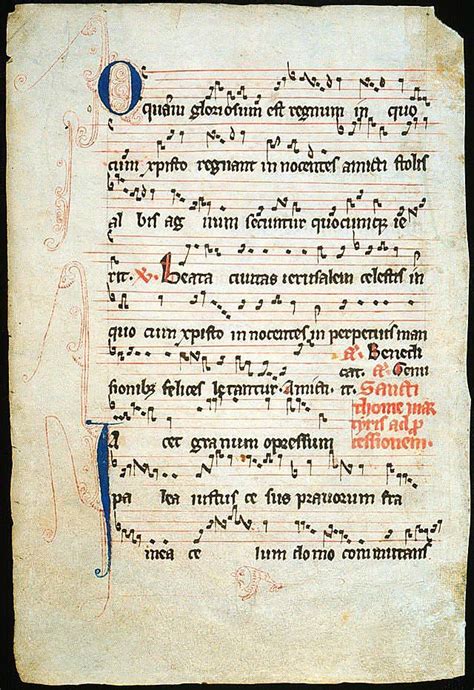 O quam gloriosum est regnum in quo
cum xpisto regnant in nocentes amicti stolis
al bis ag num secuntur quocumque ie
rit. V. Beata civitas ierusalem celestis in
quo cum xpisto in nocentes in perpetuis man
Benedi
cat. Gemi
sionib felices letantur. Amicti. Sancti
thome mar
tyris ad p
cessionem.
Iacet granum opressum
pa lea iustus ce sus pravorum fra
mea ce lium domo commutans